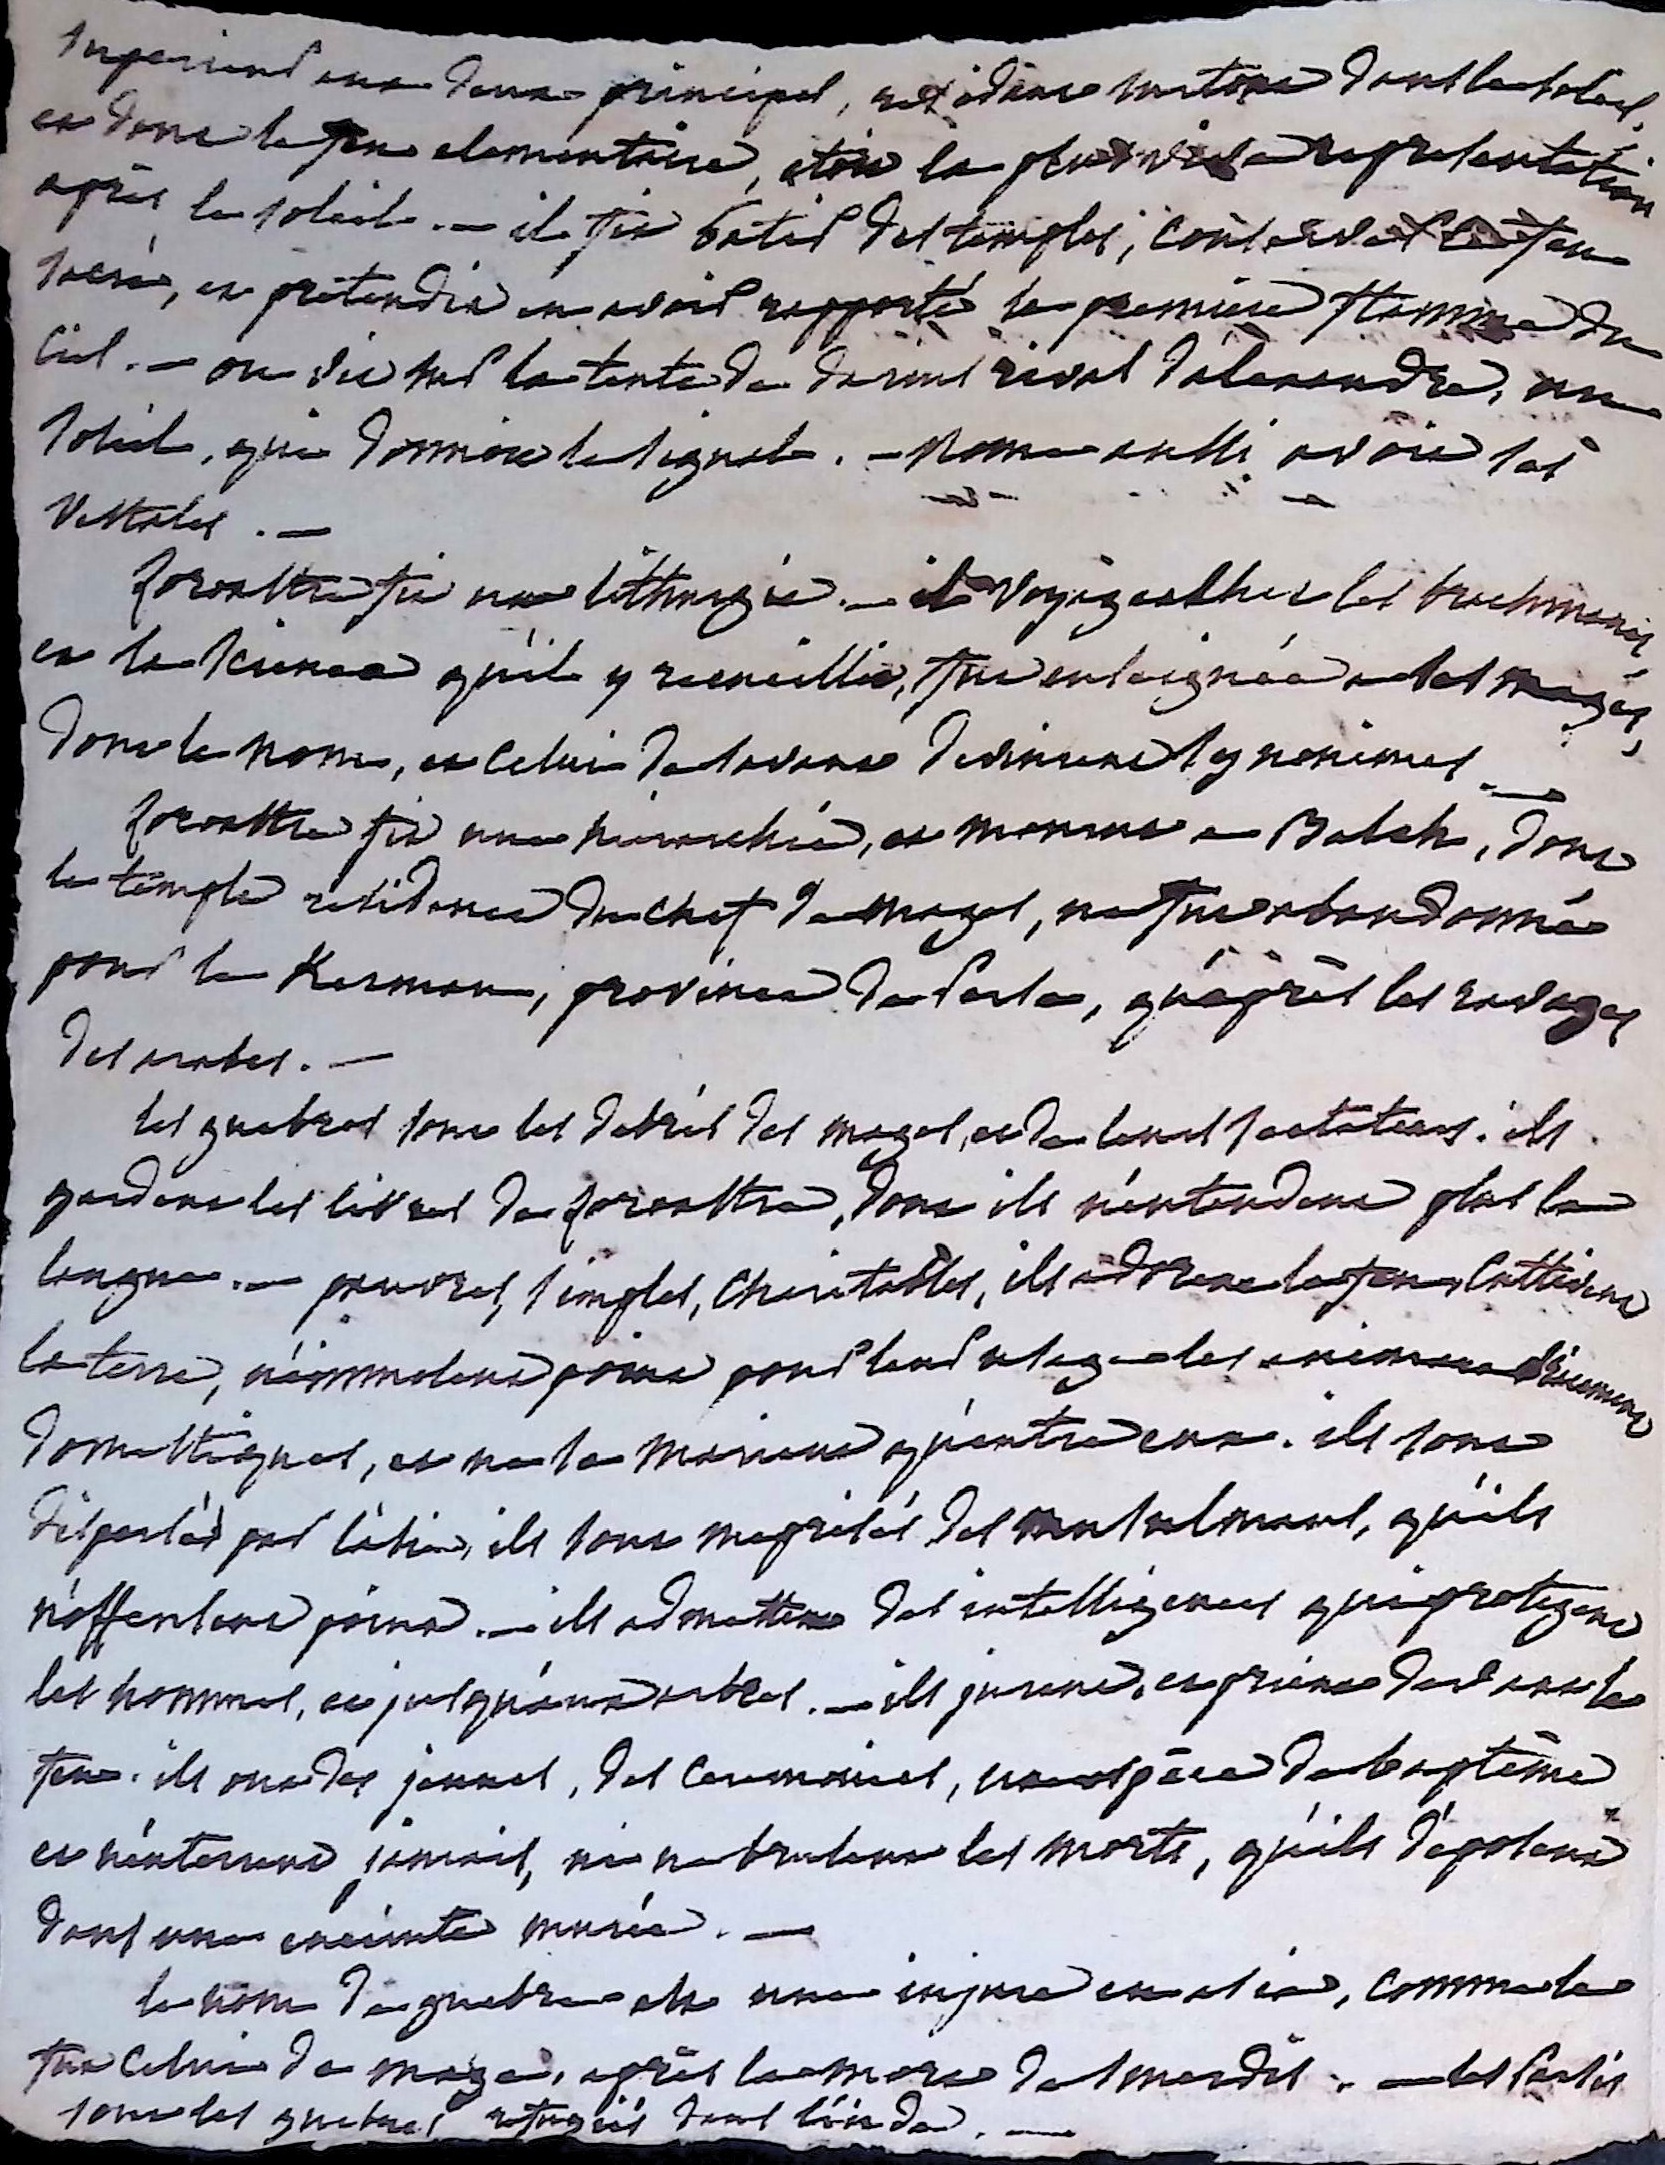 superieur aux deux principes, residence surtout dans le soleil,
et dans le feu elementaire, étoit la plus vive representation
après le soleil. — il fit batir des temples, conserva le feu
sacré, et prétendit en avoir rapporté la premiere flamme du
Ciel. — on vit sur la tente de darius rival d'alexandre, un
soleil, qui donnoit le signal. — Rome aussi avoit ses
Vestales. —
Zoroastre fit une litthurgie. — il voyagea chez les brachmanes,
et la science qu'il y recueillit, fut enseignée a ses mages,
dont le nom, et celui de savans devinrent synonimes —
Zoroastre fit une hierarchie, et mourut a Balck, dont
le temple residence du chef de mages, ne fut abandonné
pour le Kerman, province de Perse, qu'après les ravages
des arabes. —
les guebres sont les débris des mages, et de leurs sectateurs. ils
gardent les livres de Zoroastre, dont ils n'entendent plus la
langue. — pauvres, simples, charitables, ils adorent le feu, cultivent
la terre, n'immolent point pour leur usage les animaux
domestiques, et ne se marient qu'entre eux. ils sont
dispersés par l'asie, ils sont meprisés des musulmans, qu'ils
n'offensent point. — ils admettent des intelligences qui protegent
les hommes, et jusqu'aux arbres. — ils jurent, et prient devant le
feu. ils ont des jeunes, des ceremonies, une espèce de baptême
et n'enterrent jamais, ni ne brulent les morts, qu'ils déposent
dans une enceinte murée. —
le nom de guebre est une injure en asie, comme le
fut celui de mage, après la mort de smerdis. — les Parsis
sont les guebres refugiés dans l'inde. —